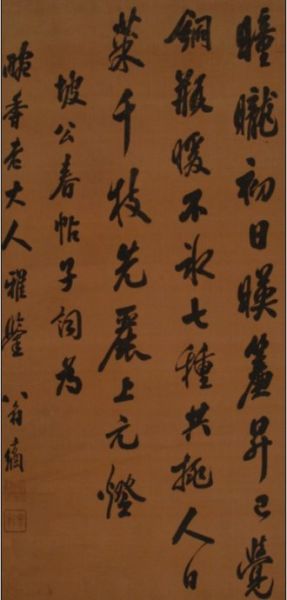 瞳朧初日暎簾昇已覺
銅瓶暖不氷七種共挑人日
菜千枝先麗上元燈
坡公春帖子詞為
香老大人雅鑒